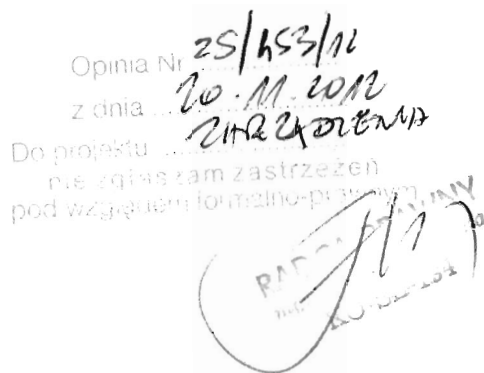 Opinia Nr 25/453/12
z dnia 20.11.2012
Do projektu ZARZĄDZENIA
nie zgłaszam zastrzeżeń
pod względem formalno-prawnym
RADCA PRAWNY